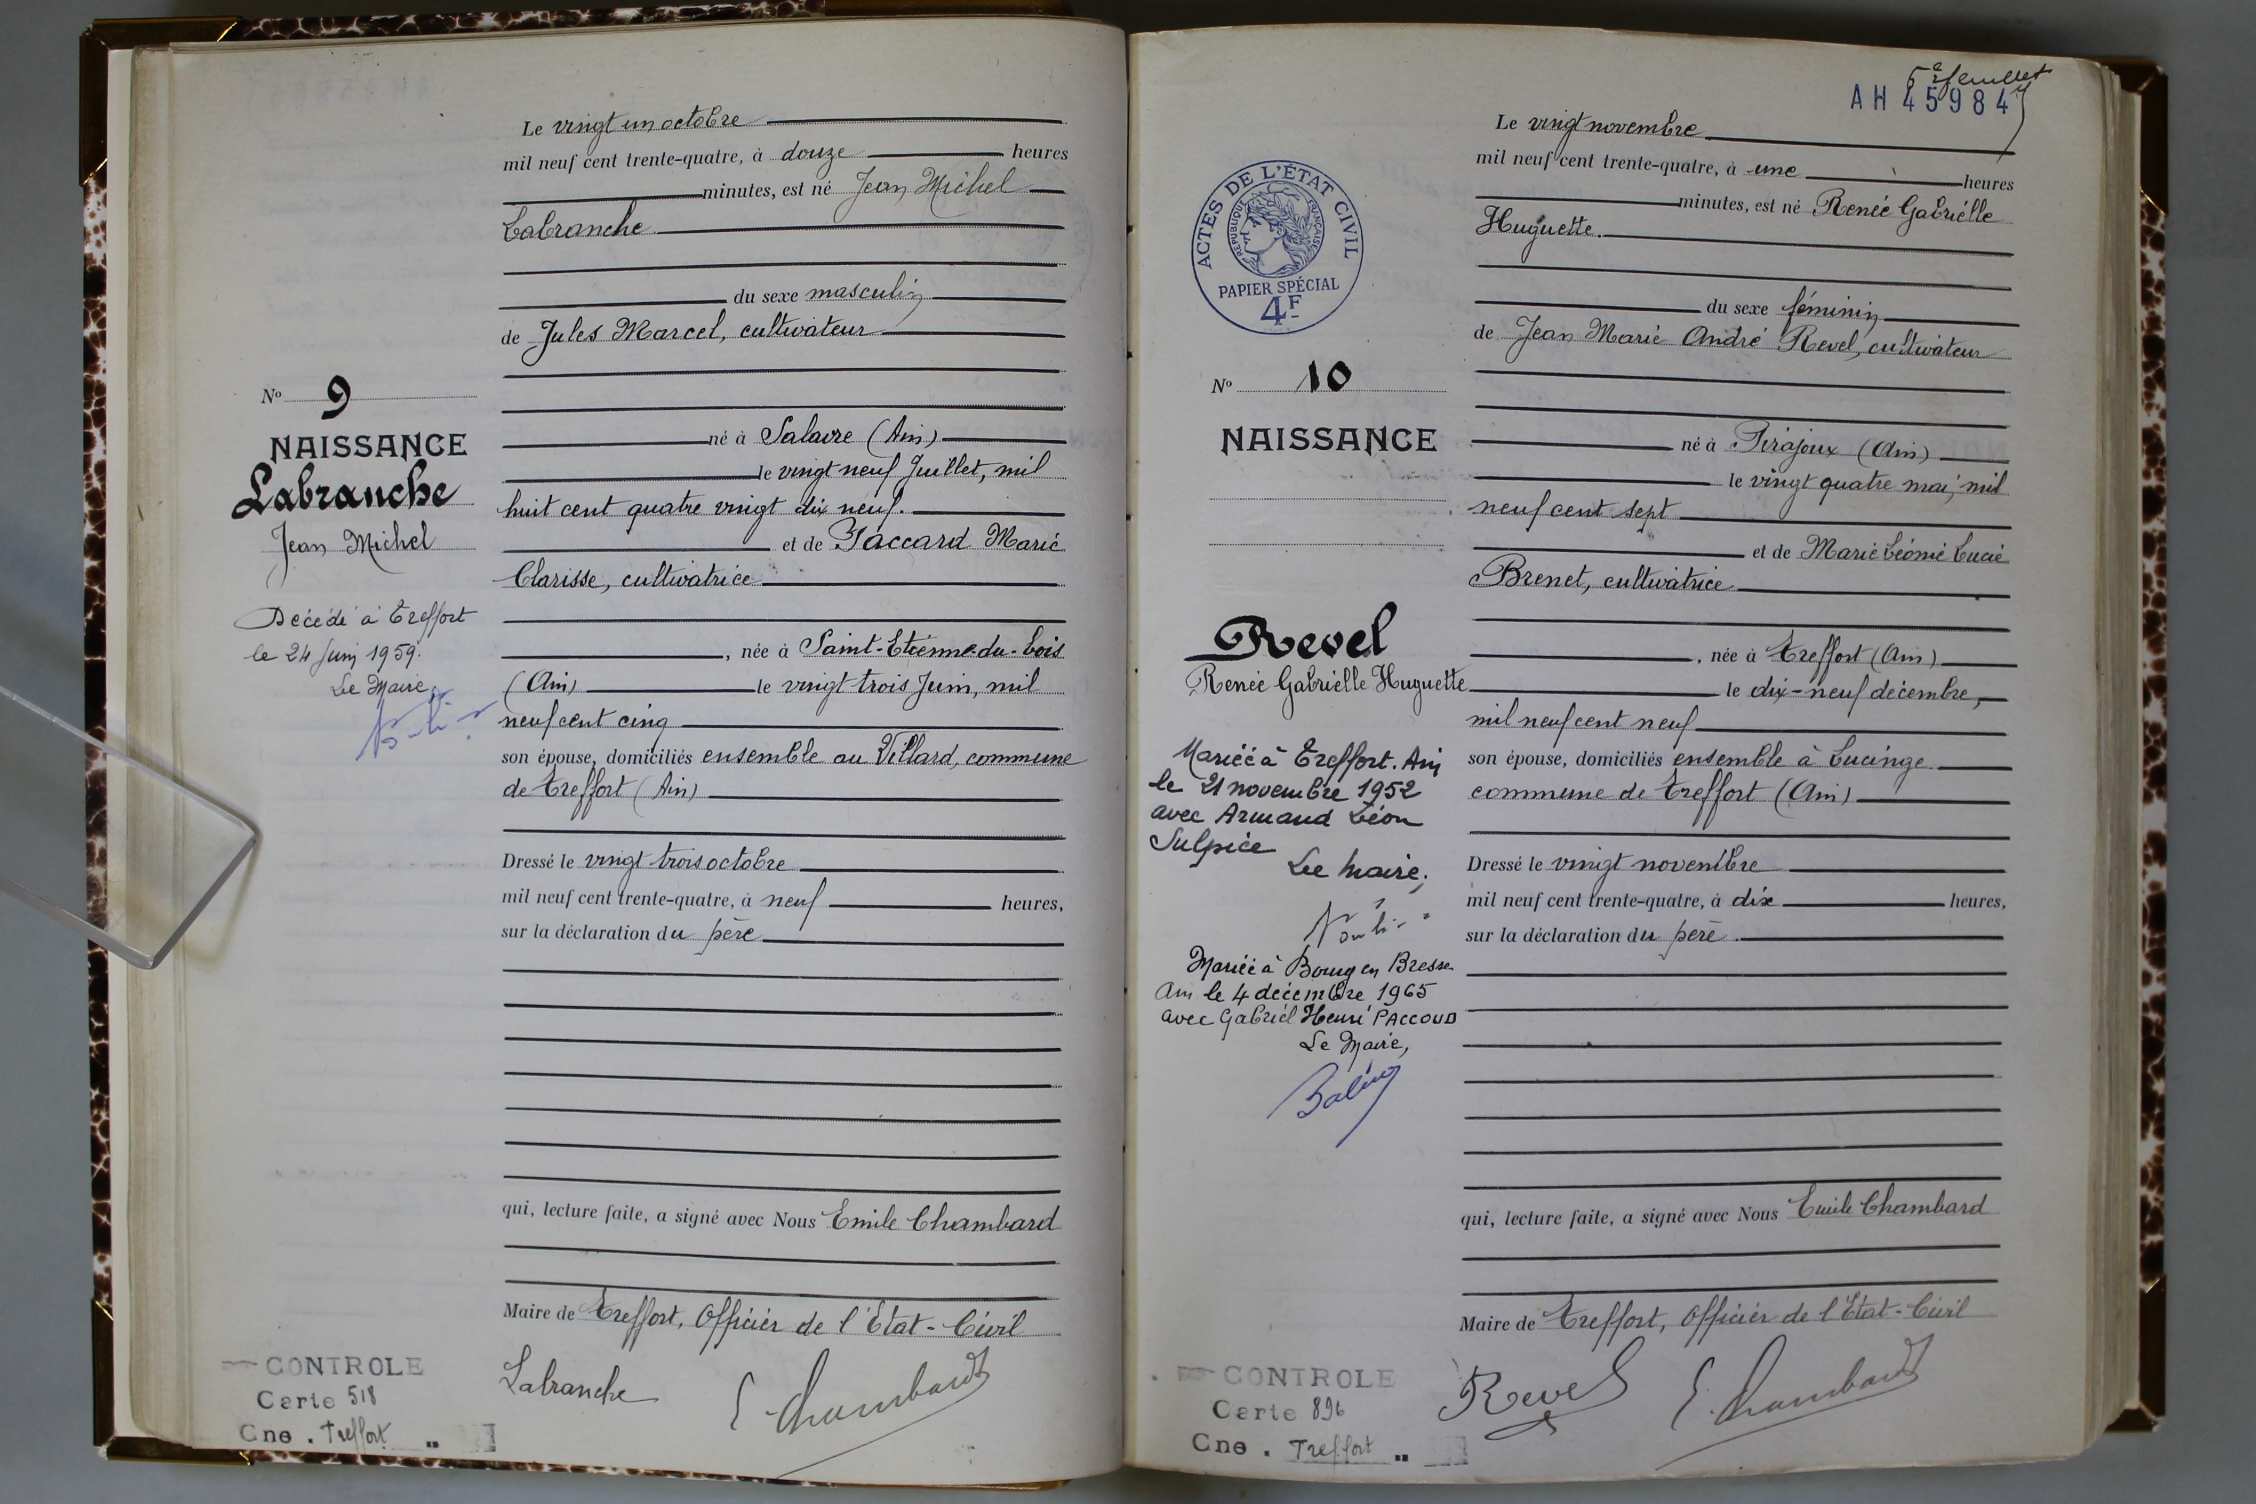 Le vingt un octobre
mil neuf cent trente-quatre, à douze heures
minutes, est né Jean Michel
Labranche
du sexe masculin
de Jules Marcel, cultivateur
né à Salavre (Ain)
le vingt neuf Juillet, mil
huit cent quatre vingt dix neuf.
et de Paccard Marie
Clarisse, cultivatrice
, née à Saint-Etienne-du-Bois
(Ain) le vingt trois Juin, mil
neuf cent cinq
son épouse, domiciliés ensemble au Villard, commune
de Treffort (Ain)
Dressé le vingt trois octobre
mil neuf cent trente-quatre, à neuf heures,
sur la déclaration du père
qui, lecture faite, a signé avec Nous Emile Chambard
Maire de Treffort, Officier de l'Etat-Civil
Labranche E Chambard
No 9
NAISSANCE
Labranche
Jean Michel
Décédé à Treffort
le 24 Juin 1959.
Le Maire,
CONTROLE
Carte 518
Cne. Treffort
5e feuillet
AH 45984
ACTES DE L'ÉTAT CIVIL
RÉPUBLIQUE FRANÇAISE
PAPIER SPÉCIAL
4F
Le vingt novembre
mil neuf cent trente-quatre, à une heures
minutes, est né Renée Gabrielle
Huguette.
du sexe féminin
de Jean Marie André Revel, cultivateur
né à Pirajoux (Ain)
le vingt quatre mai, mil
neuf cent sept
et de Marie Léonie Lucie
Brenet, cultivatrice
, née à Treffort (Ain)
le dix-neuf décembre,
mil neuf cent neuf
son épouse, domiciliés ensemble à Lucinge
commune de Treffort (Ain)
Dressé le vingt novembre
mil neuf cent trente-quatre, à dix heures,
sur la déclaration du père.
qui, lecture faite, a signé avec Nous Emile Chambard
Maire de Treffort, Officier de l'Etat-Civil
Revel E. Chambard
No 10
NAISSANCE
Revel
Renée Gabrielle Huguette
Mariée à Treffort. Ain
le 21 novembre 1952
avec Armand Léon
Sulpice
Le Maire,
Mariée à Bourg en Bresse
Ain le 4 décembre 1965
avec Gabriel Henri PACCOUD
Le Maire,
CONTROLE
Carte 896
Cne. Treffort